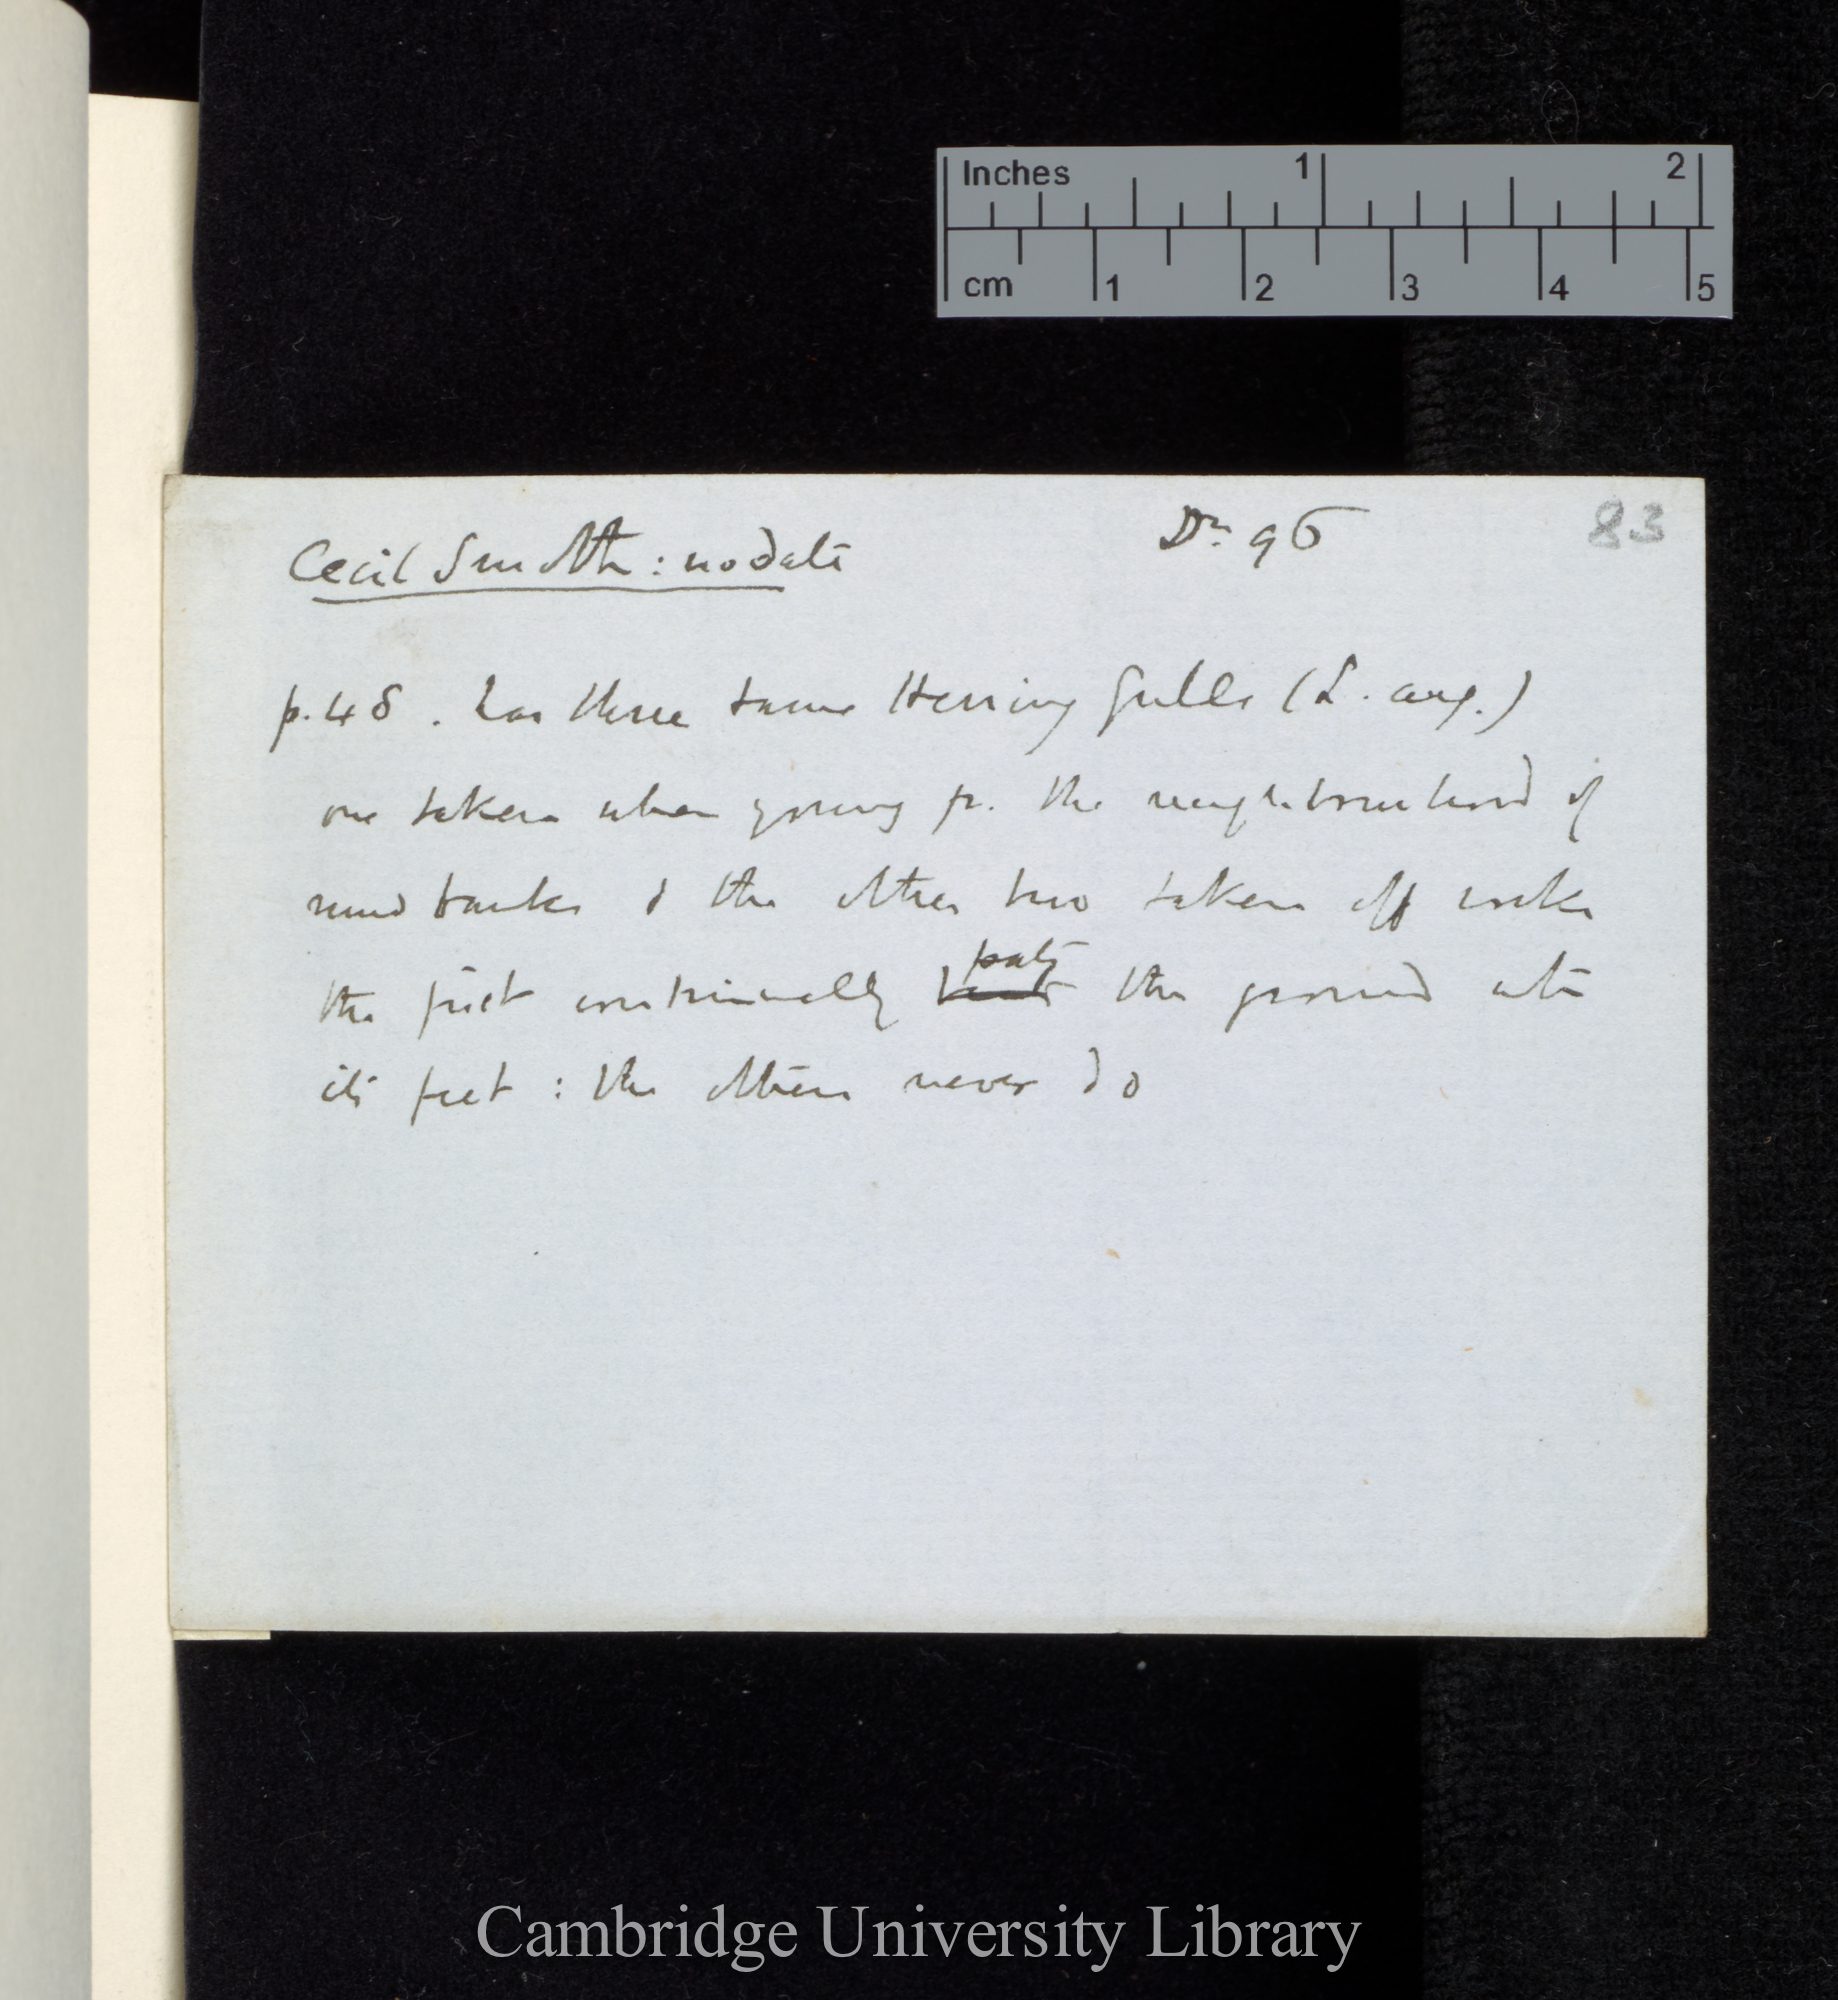 Inches 1 2
cm 1 2 3 4 5
Cecil Smith : no date Dr. 96 83
p. 48. has three tame Herring Gulls (L. arg.)
one taken when young fr. the neighbourhood of
mud banks & the other two taken off rocks
the first continually pats the ground with
its feet : the others never do
Cambridge University Library